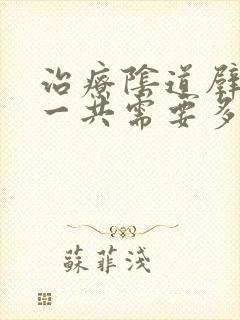 治療陰道壁
一共需要多
蘇菲淺